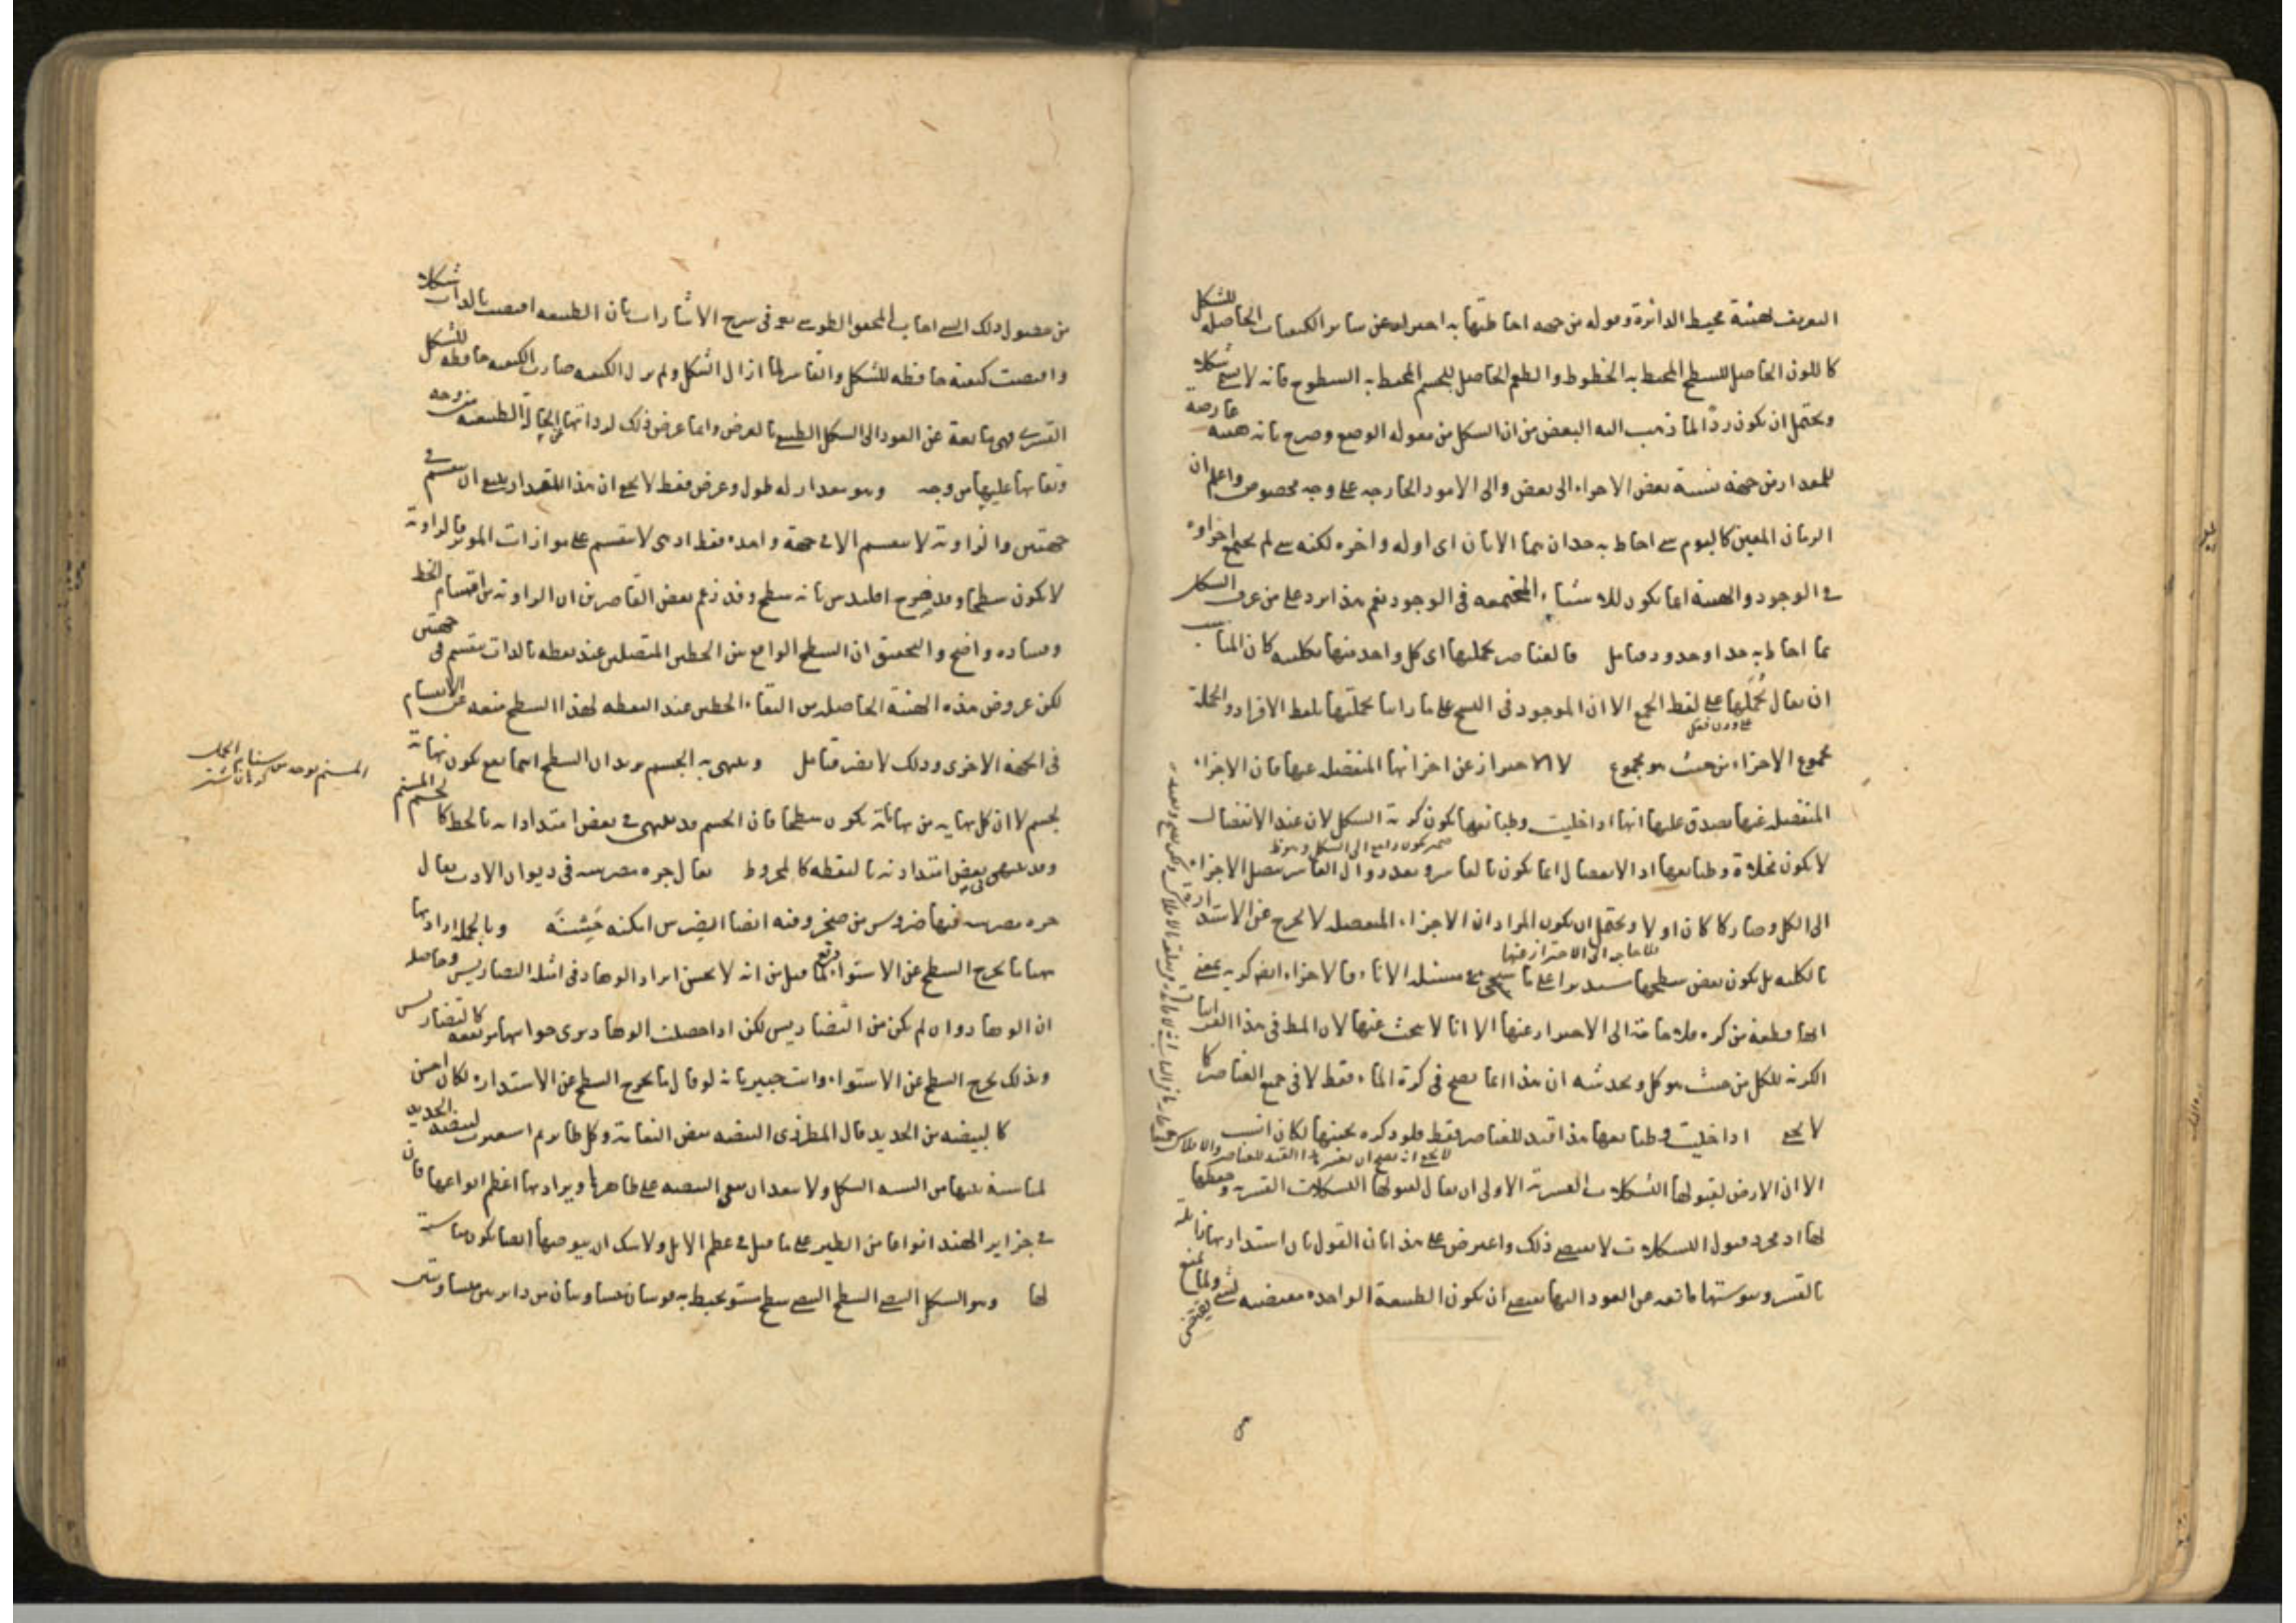 التعريف لهيئة محيط الدائرة وقوله من جهة احاطتها به احتراز عن سائر الكيفيات الحاصلة للشكل
كاللون الحاصل للسطح المحيط به الخطوط والطعم الحاصل للجسم المحيط به السطوح فانه لا يسمى شكلا
ويحتمل ان يكون ردا لما ذهب اليه البعض من ان الشكل من مقولة الوضع وصرح بانه هيئة عارضة
للمقدار من جهة نسبة بعض الاجزاء الى بعض والى الامور الخارجة على وجه مخصوص واعلم ان
الزمان المعين كاليوم احاط به حدان هما الانان اى اوله واخره لكنه لم يجتمع اجزاوه
فى الوجود والهيئة انما يكون للاشياء المجتمعة فى الوجود نعم هذا يرد على من عرف الشكل
بما احاط به حد او حدود فتامل فالعناصر بجملتها اى كل واحد منها بكليته كان المناسب
ان يقال بجملها على لفظ الجمع الا ان الموجود فى النسخ على ما راينا بجملتها بلفظ الافراد والجملة
على وزن
مجموع الاجزاء من حيث هو مجموع لا الاحتراز عن اجزائها المنفصلة عنها فان الاجزاء
المنفصلة عنها يصدق عليها انها اذا خليت وطبائعها يكون كرية الشكل لان عند الانفصال
لا يكون مخلاة وطبائعها اذ الانفصال انما يكون بالقاسر وبعد زوال القاسر يتصل الاجزاء
الى الكل وصار كما كان اولا ويحتمل ان يكون المراد ان الاجزاء المنفصلة لا يخرج عن الاستدارة
فلا حاجة الى الاحتراز عنها
بالكلية بل يكون بعض سطحها مستديرا على ما سيجئ فى مسئلة الاناء فالاجزاء ايضا كرية بمعنى
انها قطعة من كرة فلا حاجة الى الاحتراز عنها الا انا لا نبحث عنها لان المط فى هذا الفن اثبات
الكرية للكل من حيث هو كل ويخدشه ان هذا انما يصح فى كرة الماء فقط لا فى جميع العناصر كما
لا يخفى اذا خليت وطبائعها هذا قيد للعناصر فقط فلو ذكره بجنبها لكان انسب
الا ان الارض لقبولها التشكلات القسرية الاولى ان يقال لقبولها التشكلات القسرية وحفظها
لها اذ مجرد قبول التشكلات لا يقتضى ذلك واعترض على هذا بان القول بان استدارتها زائلة
بالقسر ويبوستها مانعة من العود اليها يقتضى ان يكون الطبيعة الواحدة مقتضية لشئ ولما يمنع
من حصول ذلك الشئ اجاب المحقق الطوسى فى شرح الاشارات بان الطبيعة اقتضت بالذات شكلا
واقتضت كيفية حافظة للشكل والقاسر لما ازال الشكل ولم يزل الكيفية صارت الكيفية حافظة للشكل
القسرى فهى مانعة عن العود الى الشكل الطبيعى بالعرض وانما عرض ذلك الطبيعة من وجه
وبقائها عليها من وجه وهو مقدار له طول وعرض فقط لا يخفى ان هذا المقدار ان ينقسم فى
جهتين والزاوية لا ينقسم الا فى جهة واحدة فقط اذ هى لا تنقسم على موازات الوتر فالزاوية
لا يكون سطحا وقد صرح اقليدس بانه سطح وقد زعم بعض القاصرين ان الزاوية من اقسام الخط
وفساده واضح والتحقيق ان السطح الواقع بين الخطين المتصلين عند نقطة بالذات ينقسم فى جهتين
لكن عروض هذه الهيئة الحاصلة من التقاء الخطين عند النقطة لهذا السطح منعه عن الانقسام
فى الجهة الاخرى وذلك لا يضر فتامل وينتهى به الجسم يريد ان السطح انما يكون نهاية
لجسم لا ان كل نهاية من نهاياته يكون سطحا فان الجسم قد ينتهى فى بعض امتداداته بالخط كالجسم المسنم
وقد ينتهى فى بعض امتداداته بالنقطة كالمخروط يقال حرة مضرسة فى ديوان الادب يقال
حرة مضرسة فيها ضروس من صخر وفيه ايضا الضرس اكمة خشنة وبالجملة اراد بها
ههنا ما يخرج السطح عن الاستواء فدفع لما قيل من انه لا يحسن ايراد الوهاد فى امثلة التضاريس وحاصله
ان الوهاد وان لم يكن من التضاريس لكن اذا حصلت الوهاد يرى جوانبها مرتفعة كالتضاريس
وبذلك يخرج السطح عن الاستواء وانت خبير بانه لو قال ما يخرج السطح عن الاستدارة لكان احسن
كالبيضة من الحديد قال المطرزى البيضة بيض النعامة وكل طاير ثم استعيرت لبيضة الحديد
لمناسبة بينهما من الشبه الشكلى ولا يبعد ان يبقى البيضة على ظاهرها ويراد بها اعظم انواعها فان
فى جزاير الهند انواعا من الطير على ما قيل فى عظم الابل ولا شك ان بيوضها ايضا يكون مناسبة
لها وهو الشكل السطح سطح مستو يحيط به قوسان متساويتان من دايرتين متساويتين